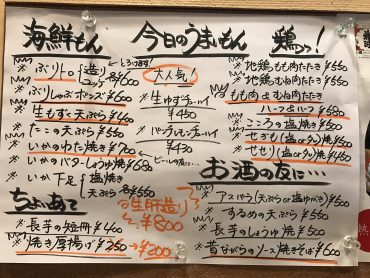 海鮮もん
とろけます!
※ぶりトロ(造り ユッケ)各¥600
※ぶりしゃぶポンズ¥600
※生もずく天ぷら¥450
※たこの天ぷら¥550
※いかのわた焼き¥700
※いかのバターしょうゆ焼¥680
※いか下足(塩焼き 天ぷら)各¥550
ちょいあて
※長芋の短冊¥400
※焼き厚揚げ¥350→¥200
今日のうまいもん
大人気!
※生ゆずチューハイ
¥450
※パイナップルチューハイ
¥430
ビールの友に…
生肝造り
¥800
鶏ッ!
※地鶏ももたたき¥550
※地鶏むねたたき¥500
※もも肉&むね肉
ハーフ&ハーフ¥680
※こころの塩焼き¥500
※せぎも(塩orタレ)¥450
※セセリ(塩orタレ)焼¥450
お酒の友に…
※アスパラ(天ぷらor塩ゆがき)¥550
※するめの天ぷら¥550
※長芋のしょうゆ焼¥500
※昔ながらのソース焼きそば¥600